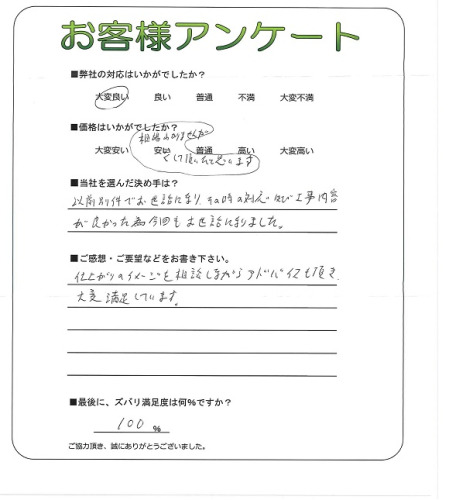 お客様アンケート
■弊社の対応はいかがでしたか？
大変良い 良い 普通 不満 大変不満
■価格はいかがでしたか？
相場わかりませんが
大変安い 安い 普通 高い 大変高い
して頂いたと思います
■当社を選んだ決め手は？
以前別件でお世話になり、その時の対応及び工事内容
が良かった為今回もお世話になりました。
■ご感想・ご要望などをお書き下さい。
仕上がりのイメージを相談しながらアドバイスも頂き、
大変満足しています。
■最後に、ズバリ満足度は何%ですか？
100 %
ご協力頂き、誠にありがとうございました。